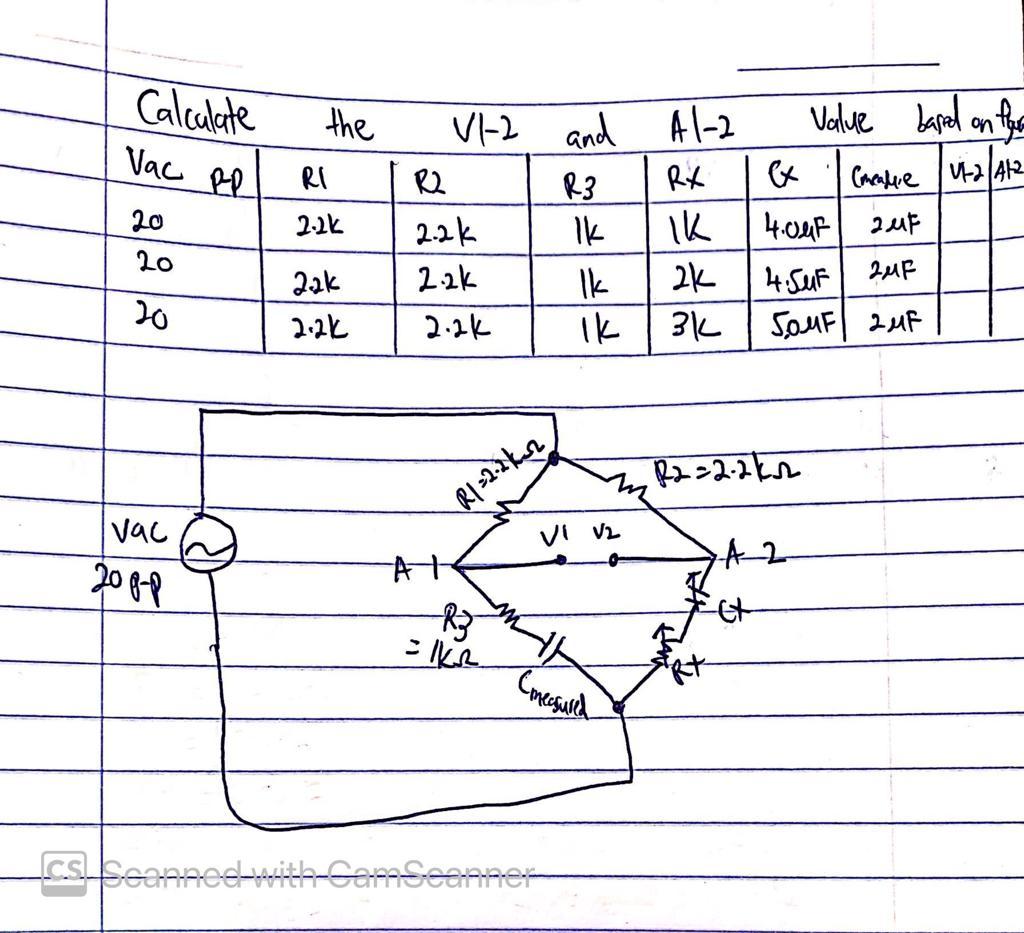 Calculate the V1-2 and A1-2 Value based on
Vac p-p R1 R2 R3 RX Cx V1-2 A1-2
20 2.2k 2.2k 1k 1K 4.0uF 2uF
20 2.2k 2.2k 1k 2K 4.5uF 2uF
20 2.2k 2.2k 1k 3k 5.0uF 2uF
R1=2.2kΩ
R2=2.2kΩ
Vac
20 p-p
V1 V2
A-1
A-2
Cx
R3
=1kΩ
Rx
Cmeasured
CS Scanned with CamScanner